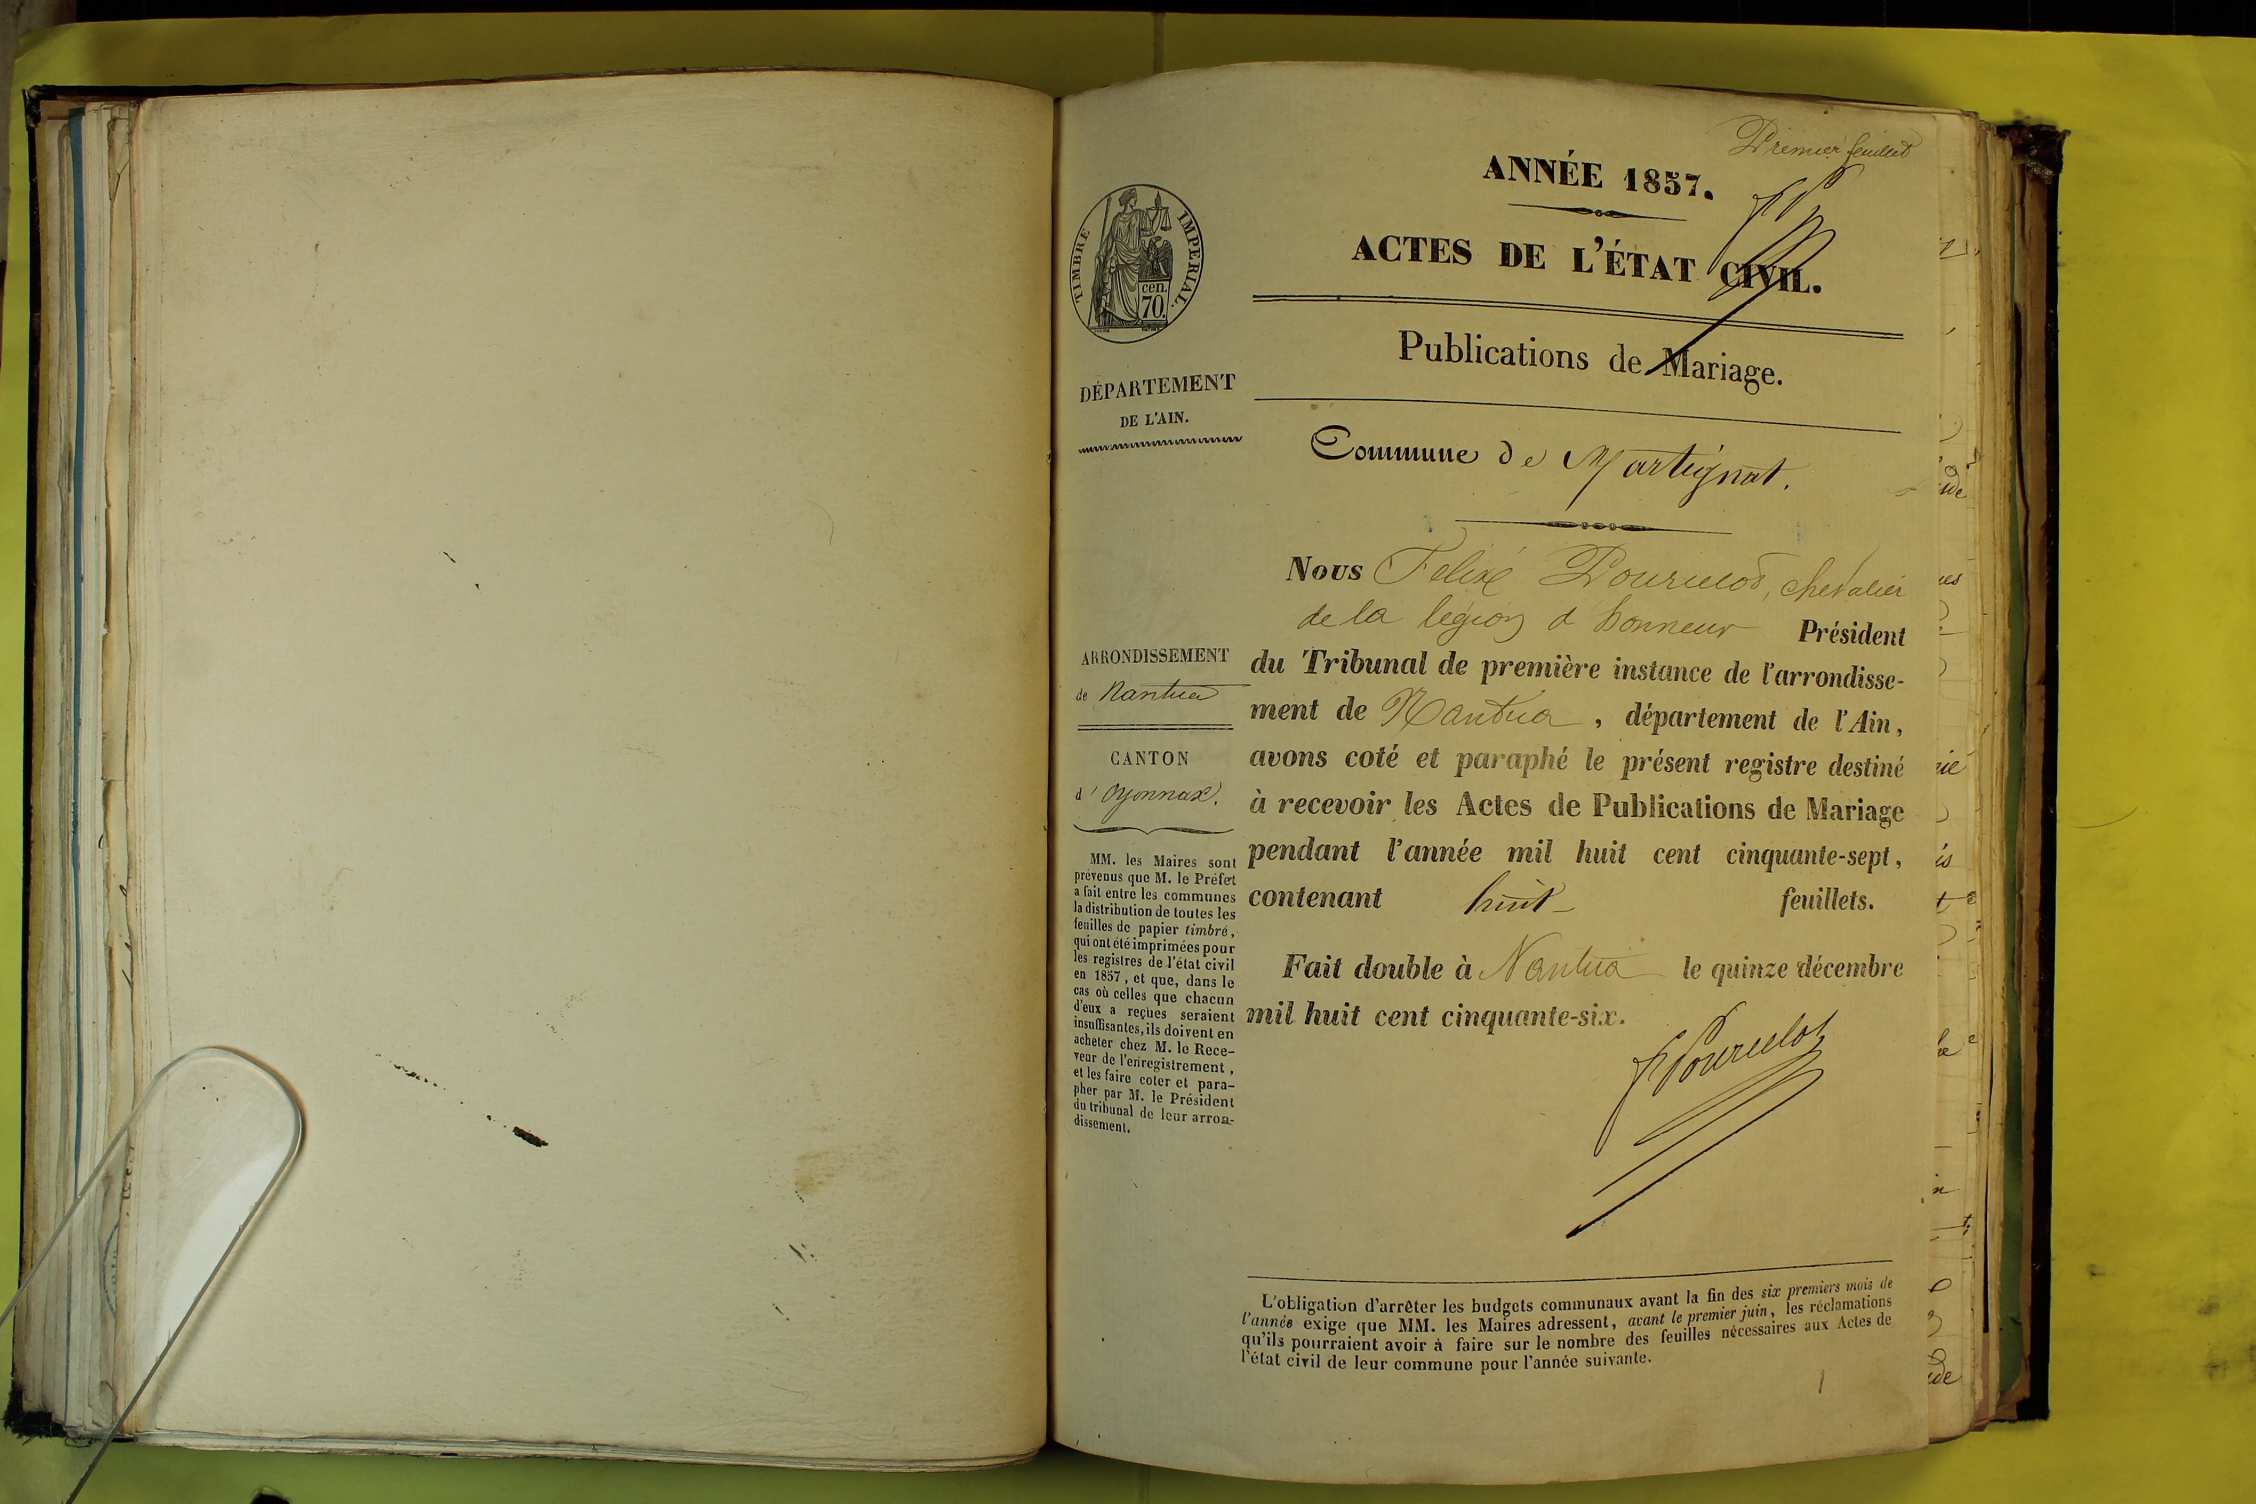 Premier feuillet
ANNÉE 1857.
ACTES DE L'ÉTAT CIVIL.
Publications de Mariage.
TIMBRE IMPERIAL.
cen.
70.
DÉPARTEMENT
DE L'AIN.
Commune de Martignat.
ARRONDISSEMENT
de Nantua
CANTON
d' Oyonnax.
MM. les Maires sont
prévenus que M. le Préfet
a fait entre les communes
la distribution de toutes les
feuilles de papier timbré,
qui ont été imprimées pour
les registres de l'état civil
en 1857, et que, dans le
cas où celles que chacun
d'eux a reçues seraient
insuffisantes, ils doivent en
acheter chez M. le Rece-
veur de l'enregistrement,
et les faire coter et para-
pher par M. le Président
du tribunal de leur arron-
dissement.
Nous Felix Pourcelot, chevalier
de la legion d honneur Président
du Tribunal de première instance de l'arrondisse-
ment de Nantua, département de l'Ain,
avons coté et paraphé le présent registre destiné
à recevoir les Actes de Publications de Mariage
pendant l'année mil huit cent cinquante-sept,
contenant huit feuillets.
Fait double à Nantua le quinze décembre
mil huit cent cinquante-six.
L'obligation d'arrêter les budgets communaux avant la fin des six premiers mois de
l'année exige que MM. les Maires adressent, avant le premier juin, les réclamations
qu'ils pourraient avoir à faire sur le nombre des feuilles nécessaires aux Actes de
l'état civil de leur commune pour l'année suivante.
1